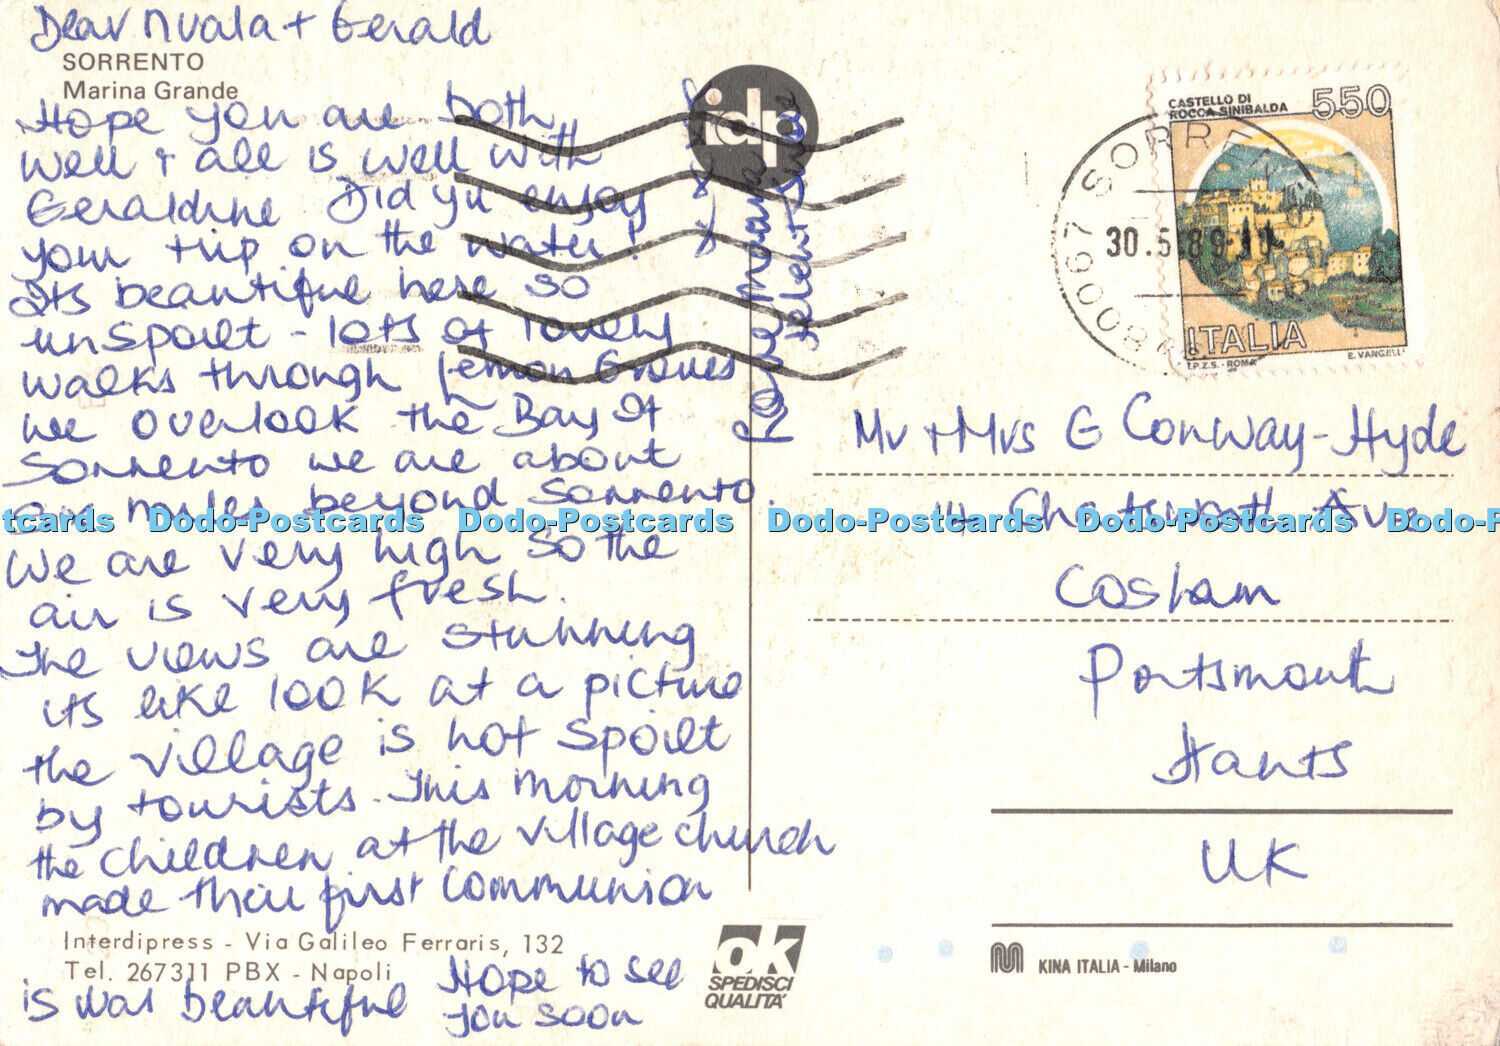 Dear Nuala + Gerald
SORRENTO
Marina Grande
Hope you are both
well + all is well with
Geraldine Did yu enjoy
your trip on the water!
Its beautifue here so
unspoilt - lots of lovely
walks through Lemon Groves
we overlook the Bay of
Sorrento we are about
six miles beyond Sorrento.
We are very high so the
air is very fresh.
The views are stunning
its like look at a picture
the village is not spoilt
by tourists. This morning
the children at the village church
made their first Communion
Interdipress - Via Galileo Ferraris, 132
Tel. 267311 PBX - Napoli
is was beautiful Hope to see
you soon
Love Moana
x x x x
idp
ok
SPEDISCI
QUALITA'
CASTELLO DI
ROCCA SINIBALDA
550
ITALIA
I.P.Z.S. - ROMA
E. VANGELLI
80067 SORRE
30.5.89
Mr + Mrs G Conway-Hyde
14 Chatsworth Ave
Cosham
Portsmouth
Hants
UK
KINA ITALIA - Milano
tcards Dodo-Postcards Dodo-Postcards Dodo-Postcards Dodo-Postcards Dodo-P